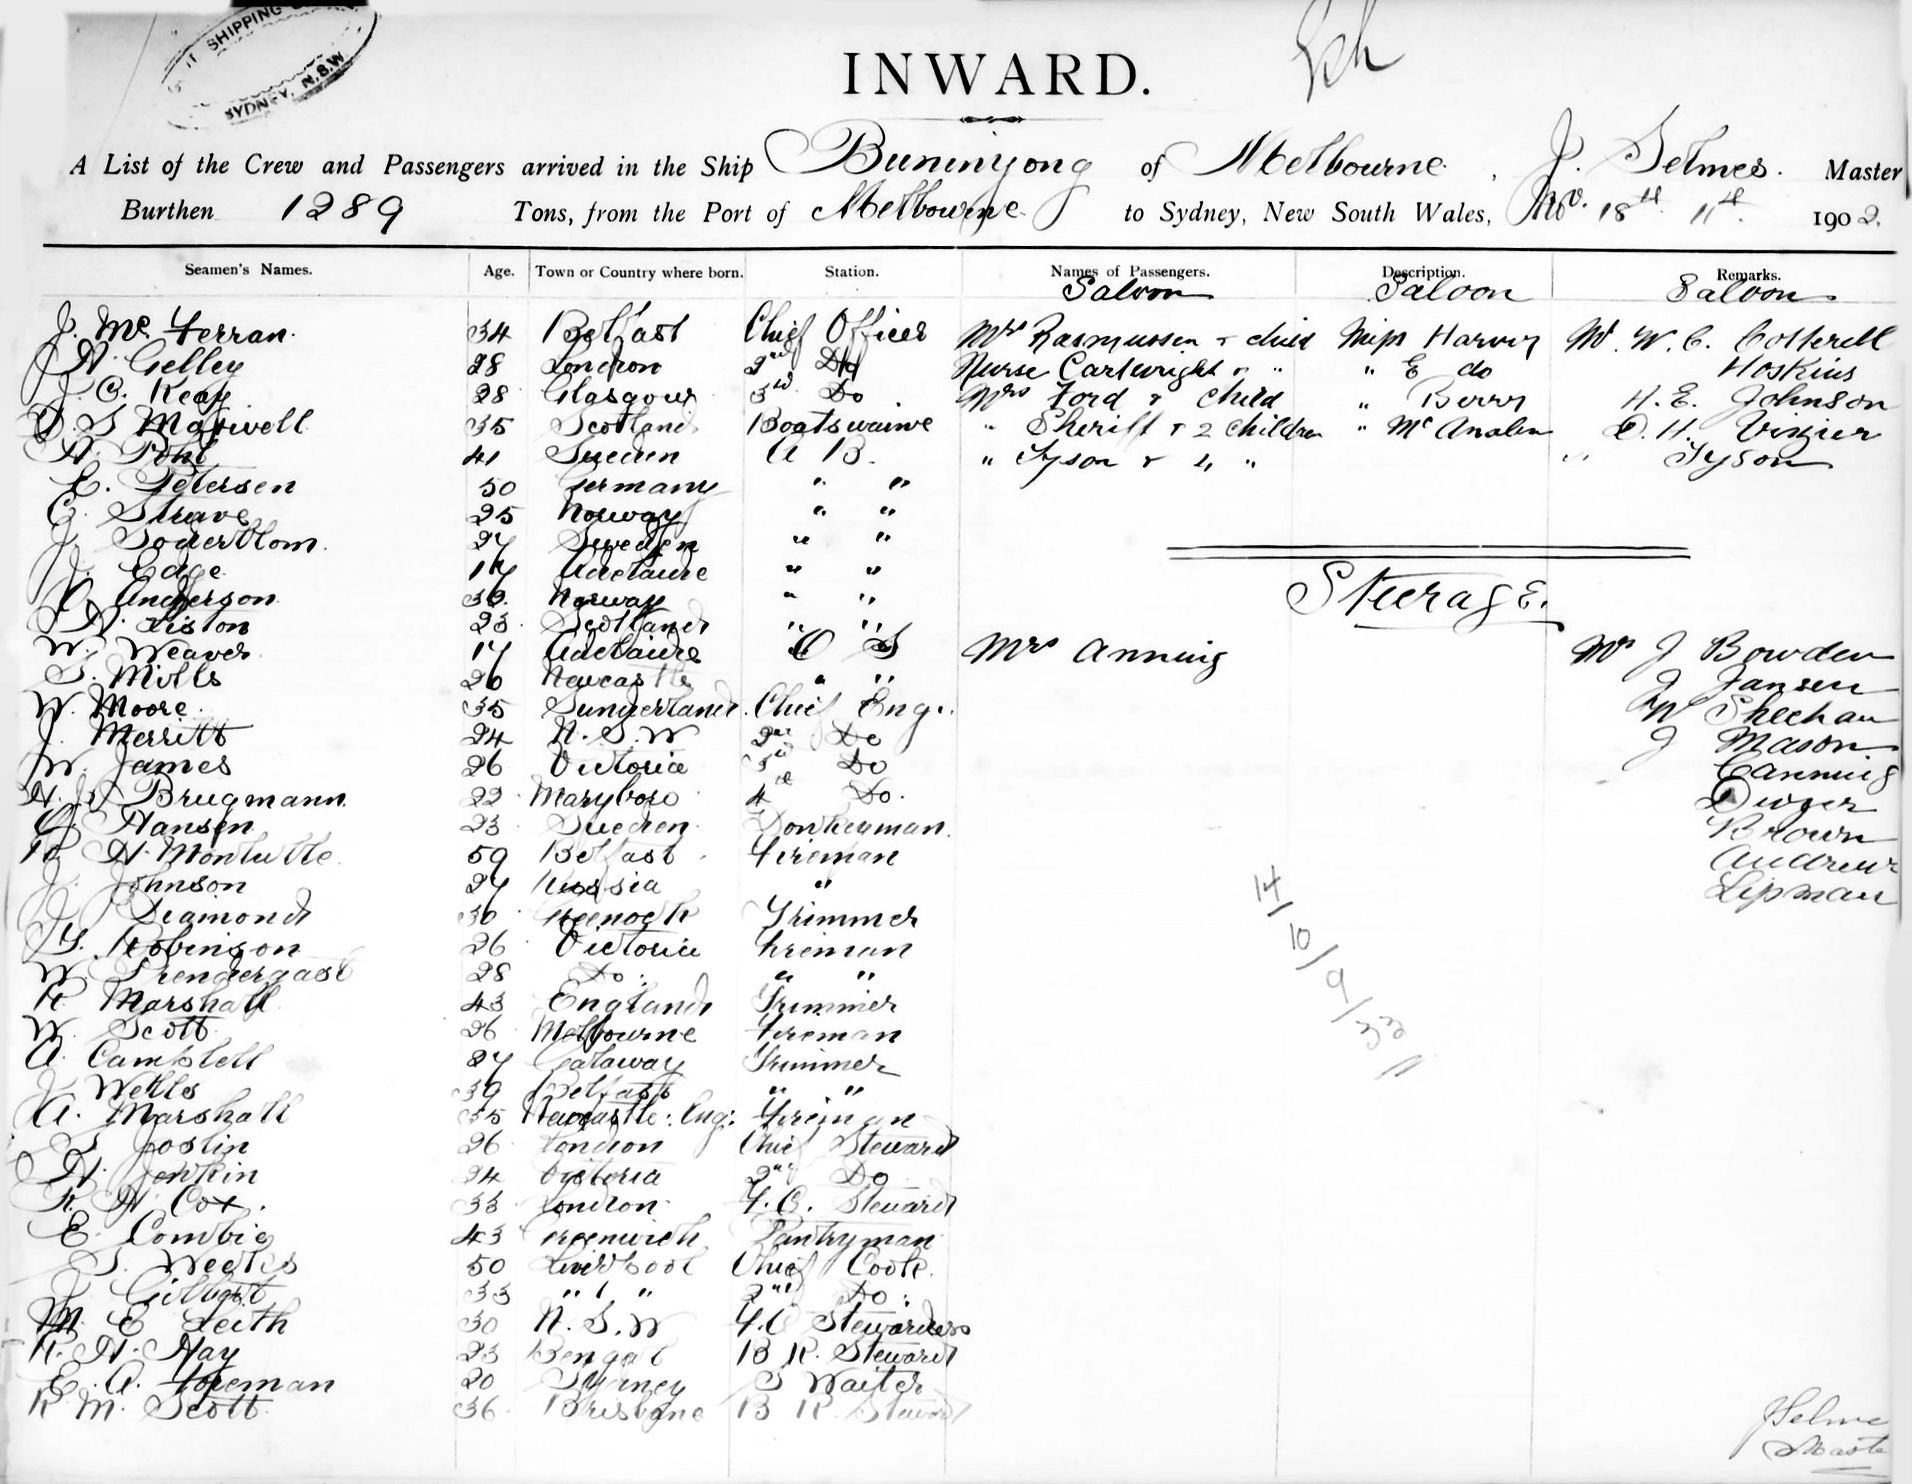 SHIPPING
SYDNEY, N.S.W
INWARD.
A List of the Crew and Passengers arrived in the Ship Buninyong of Melbourne, J. Selmes. Master
Burthen 1289 Tons, from the Port of Melbourne to Sydney, New South Wales, Nov. 18th 11th 1902.
Seamen's Names. Age. Town or Country where born. Station. Names of Passengers. Description. Remarks.
Saloon Saloon Saloon
J. Mc Ferran. 34 Belfast Chief Officer Mrs Rasmussen & child Miss Harvey Mr. W. C. Cotterell
H. Gelley 28 London 2nd Do Nurse Cartwright " " " E do Hoskins
J. C. Keay 28 Glasgow 3rd Do Mrs Ford & Child " Berry H. E. Johnson
D. S Maxwell 35 Scotland Boatswaine " Sheriff & 2 Children " Mc D. H. Vizier
H. Pohl 41 Sweden A B. " Tyson & 4 " " Tyson
E. Petersen 50 Germany " "
C. Struve 25 Norway " "
J. Soderblom. 27 Sweden " "
J. Edge 17 Adelaide " "
C. Anderson 30. Norway " "
Steerage.
H. Liston 23 Scotland " "
W. Weaver 17 Adelaide O S Mrs Anning Mr J Bowden
T. Mills 26 Newcastle " " J Jansen
W. Moore. 35 Sunderland. Chief Eng. W Sheehan
J. Merritt 24 N. S. W 2nd Do J Mason
W. James 26 Victoria 3rd Do Canning
H. J. Brugmann 22 Maryboro 4 Do. Dwyer
C. Hansen 23 Sweden Donkeyman. Brown
H. 59 Belfast Fireman Andrew
J. Johnson 27 Russia " Lipman
J. Diamond 30 Greenock Trimmer
G. Robinson 26 Victoria Fireman
W. Prendergast 28 Do " "
R. Marshall 43 England Trimmer
W. Scott 26 Melbourne Fireman
A. Campbell 27 Galaway Trimmer
J. Wells 39 Belfast " "
A. Marshall 35 Newcastle: Eng: Fireman
S Joslin 26 London Chief Steward
H. Jenkin 24 Victoria 2nd Do
R. H. Cox. 33 London F. C. Steward
E. Combie 43 Greenwich Pantryman
T. Weekes 50 Liverpool Chief Cook.
J. Gilbert 33 " " " 2nd Do.
M E Leith 30 N. S. W F.C Stewardess
R. H. Hay 23 Bengal B R. Steward
E. A. Foreman 20 Sydney S Waiter
R M. Scott 36 Brisbane B R. Steward
14/10/9/33
J Selmes
Master